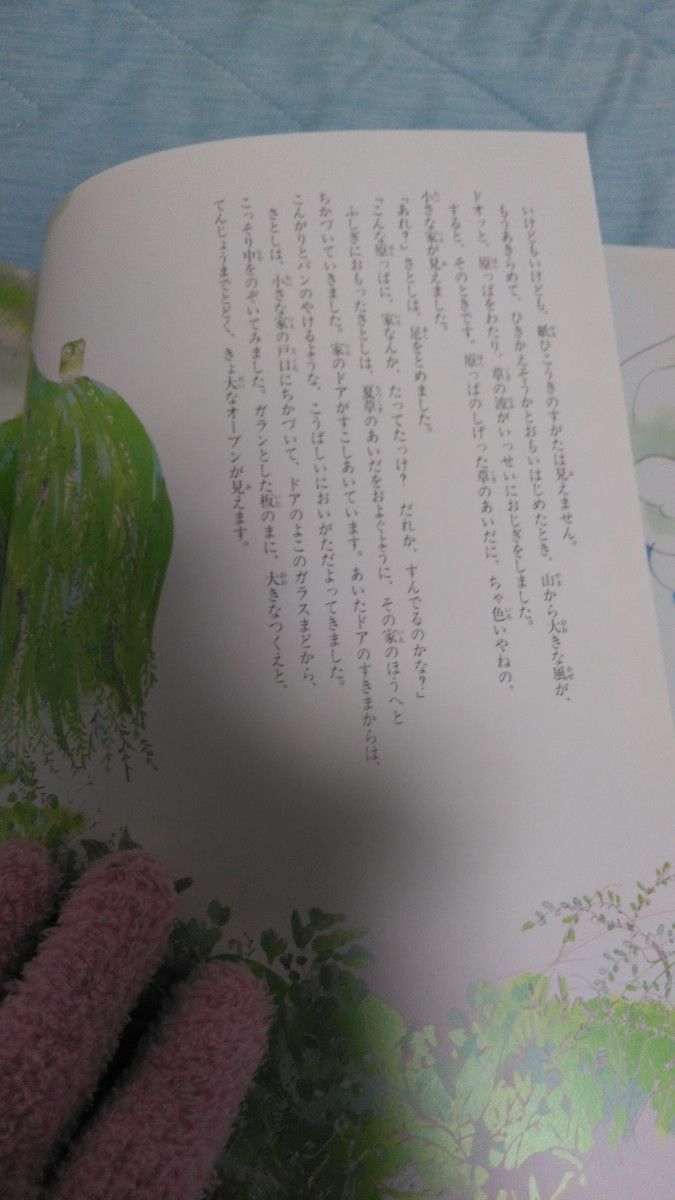 いけどもいけども、紙ひこうきのすがたは見えません。
もうあきらめて、ひきかえそうかとおもいはじめたとき、山から大きな風が、
ドオッと、原っぱをわたり、草の波がいっせいにおじぎをしました。
すると、そのときです。原っぱのしげった草のあいだに、ちゃ色いやねの、
小さな家が見えました。
「あれ？」さとしは、足をとめました。
「こんな原っぱに、家なんか、たってたっけ？　だれか、すんでるのかな？」
ふしぎにおもったさとしは、夏草のあいだをおよぐように、その家のほうへと
ちかづいていきました。家のドアがすこしあいています。あいたドアのすきまからは、
こんがりとパンのやけるような、こうばしいにおいがただよってきました。
さとしは、小さな家の戸口にちかづいて、ドアのよこのガラスまどから、
こっそり中をのぞいてみました。ガランとした板のまに、大きなつくえと、
てんじょうまでとどく、きょ大なオーブンが見えます。